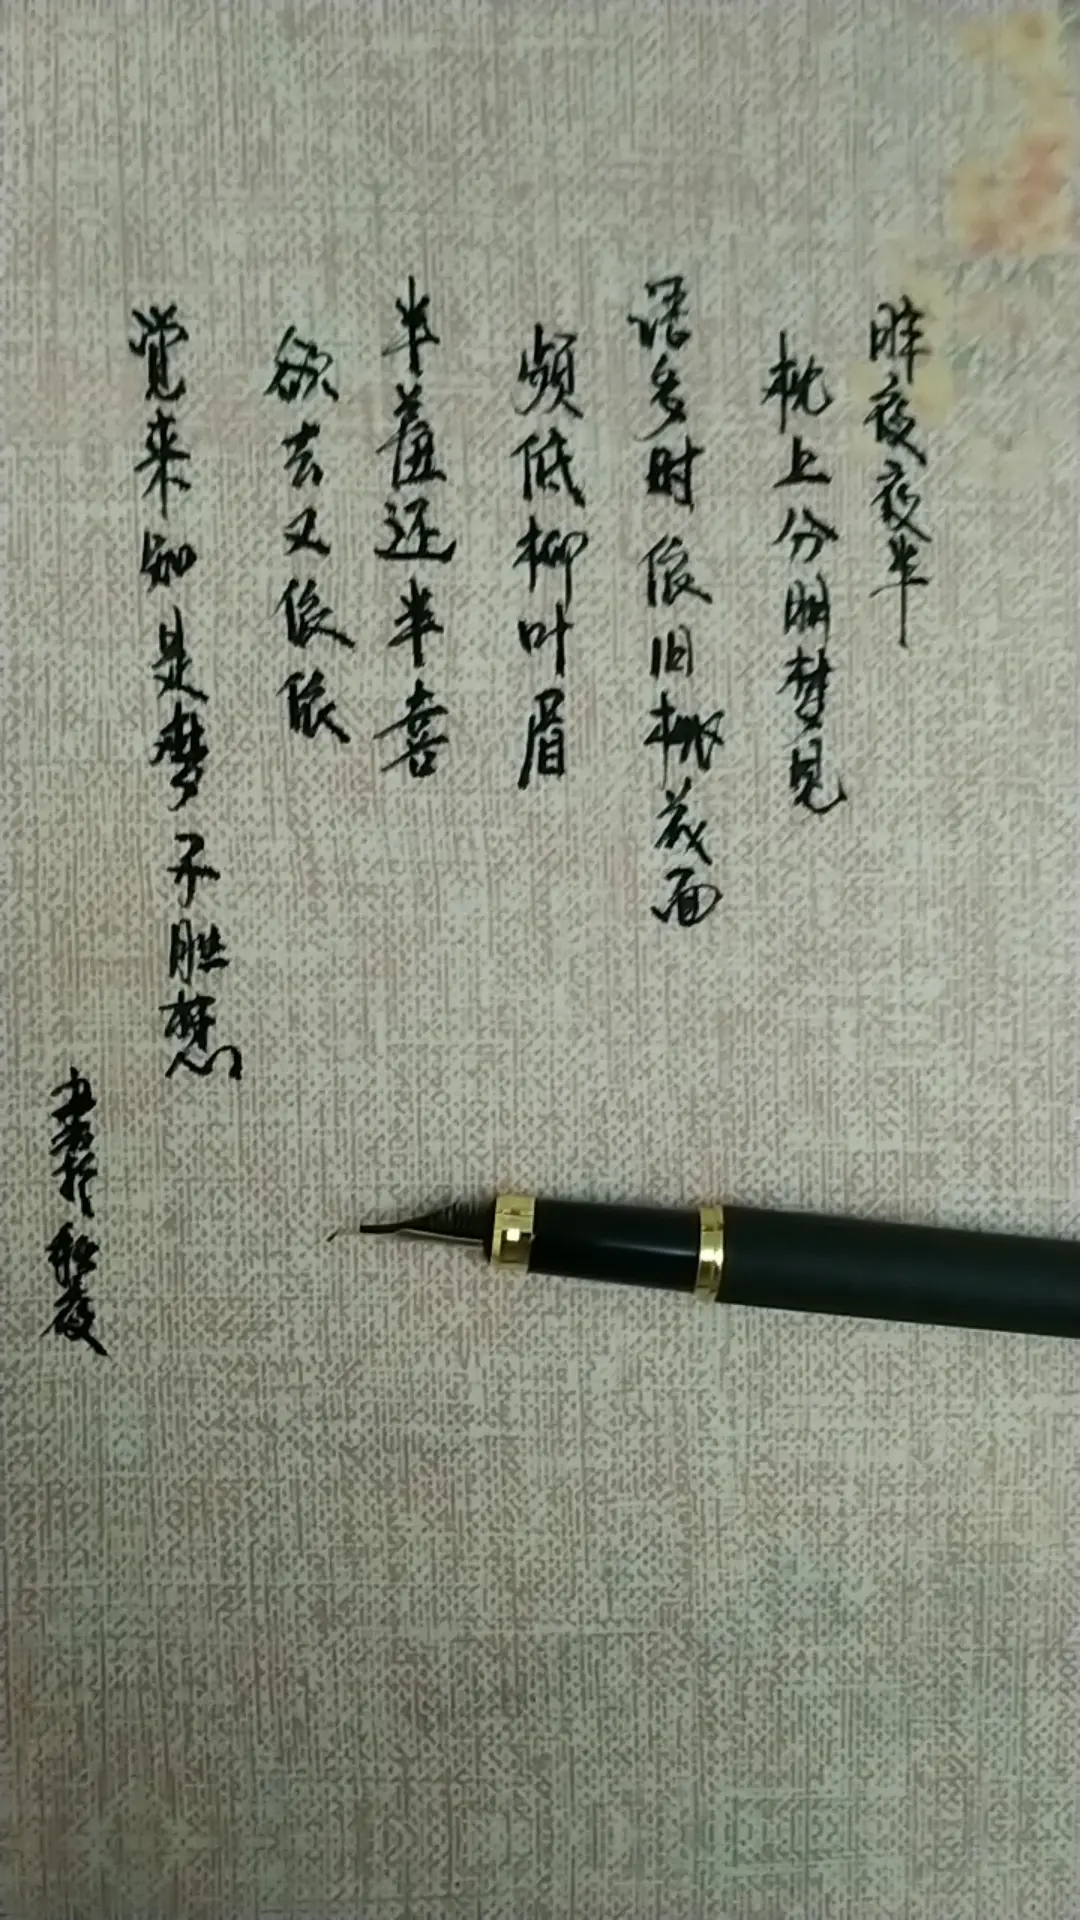 昨夜夜半
枕上分明梦见
语多时依旧桃花面
频低柳叶眉
半羞还半喜
欲去又依依
觉来知是梦不胜悲
书于秋夜